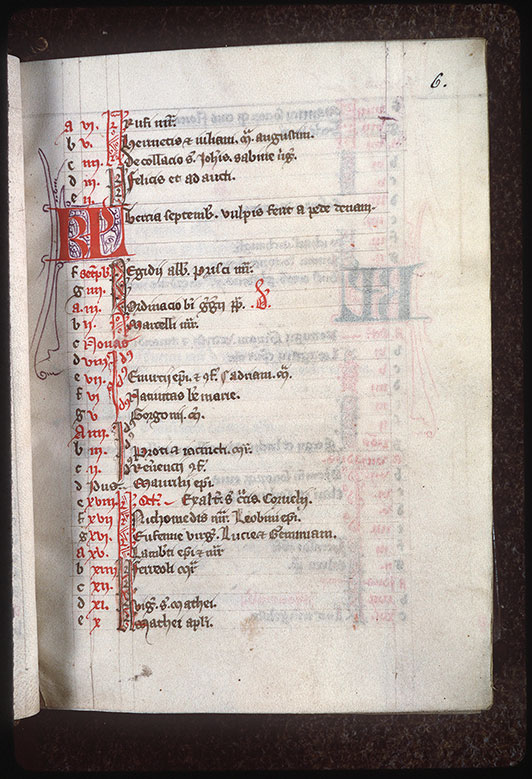 6.
a vi. Rufi mr̄.
b v. Hermetis & iuliani. m̄. augustini.
c iiii. Decollacio s̄. Joh̄is. sabine v̄g̃.
d iii. Felicis et adaucti.
e ii.
KL Tercia septemb̄. vulpis ferit a pede denam.
f Septēb̄. Egidij abb̄. Prisci mr̄.
g iiii.
a iii. Ordinacio bī gḡrij pp̄.
b ii. Marcelli mr̄.
c Nonas
d viii.
e vii. Evurcij epī. & 9f̄. s̄ adriani. m̄.
f vi Natiuitas bē marie.
g v Gorgonii. m̄.
A iiii.
b iii. Proti & iacincti. mr̄.
c ii.
d Idus Maurilij epī.
e xviii Oct̄. Exalt̄ s̄ crucis Cornelij
f xvii Nichomedis mr̄. Leobini epī.
g xvi. Eufemie virg̃. Lucie & Geminiani.
a xv. Lamb̄ti epī & mr̄
b xiiii Ferreoli mr̄
c xii.
d xi. vig̃. s̄. mathei.
e x Mathei apl̄i.